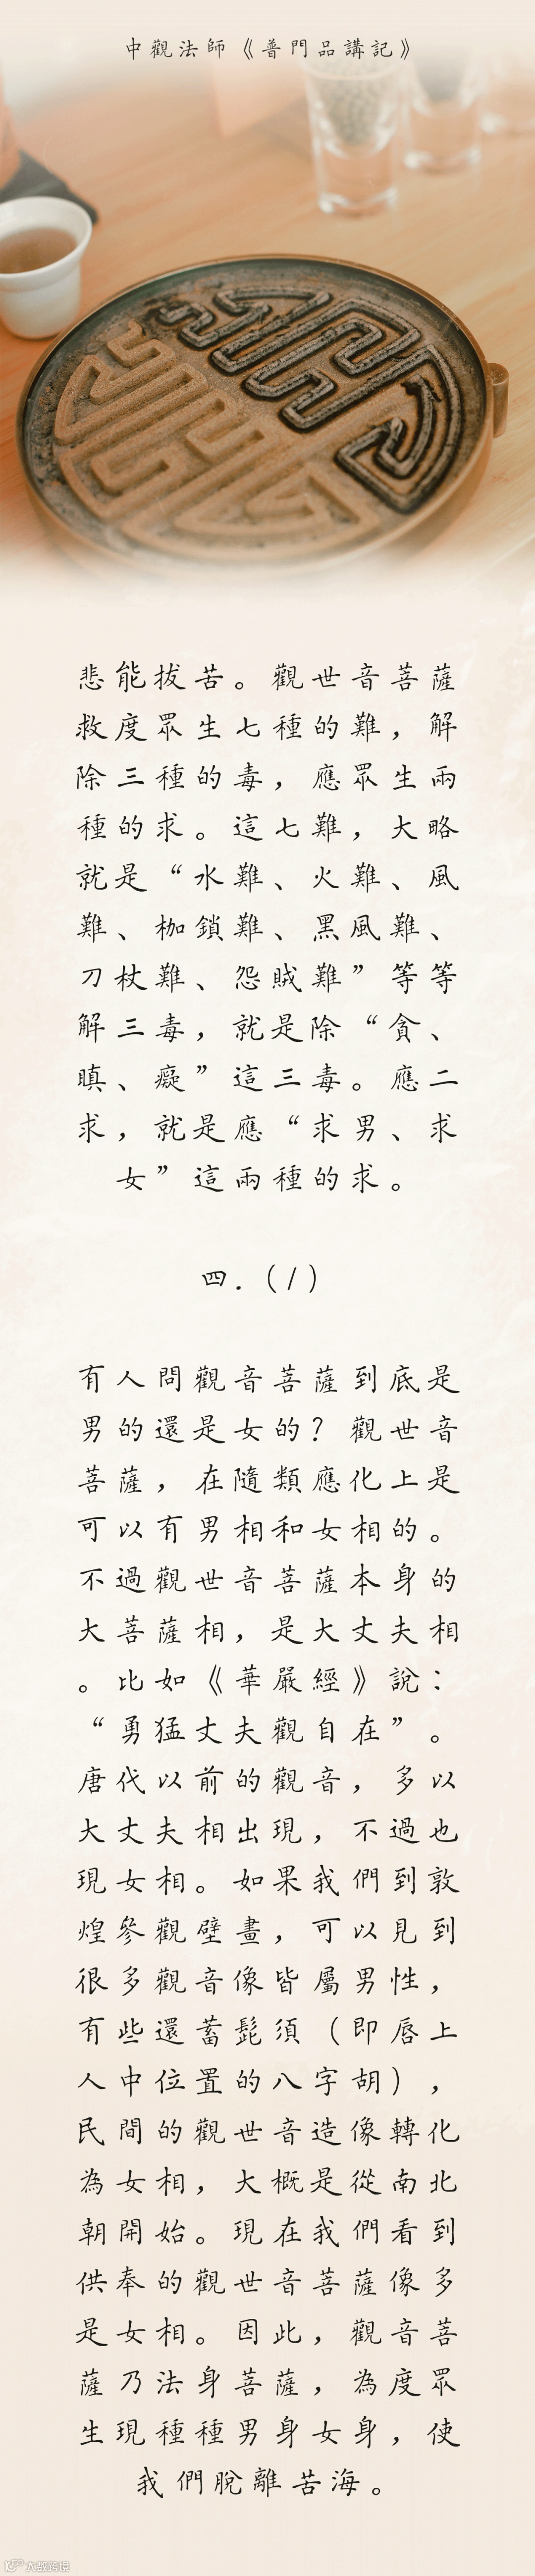 中觀法師《普門品講記》
悲能拔苦。觀世音菩薩
救度眾生七種的難，解
除三種的毒，應眾生兩
種的求。這七難，大略
就是“水難、火難、風
難、枷鎖難、黑風難、
刀杖難、怨賊難”等等
解三毒，就是除“貪、
瞋、癡”這三毒。應二
求，就是應“求男、求
女”這兩種的求。
四.(/)
有人問觀音菩薩到底是
男的還是女的？觀世音
菩薩，在隨類應化上是
可以有男相和女相的。
不過觀世音菩薩本身的
大菩薩相，是大丈夫相
。比如《華嚴經》說：
“勇猛丈夫觀自在”。
唐代以前的觀音，多以
大丈夫相出現，不過也
現女相。如果我們到敦
煌參觀壁畫，可以見到
很多觀音像皆屬男性，
有些還蓄髭須（即唇上
人中位置的八字胡），
民間的觀世音造像轉化
為女相，大概是從南北
朝開始。現在我們看到
供奉的觀世音菩薩像多
是女相。因此，觀音菩
薩乃法身菩薩，為度眾
生現種種男身女身，使
我們脫離苦海。